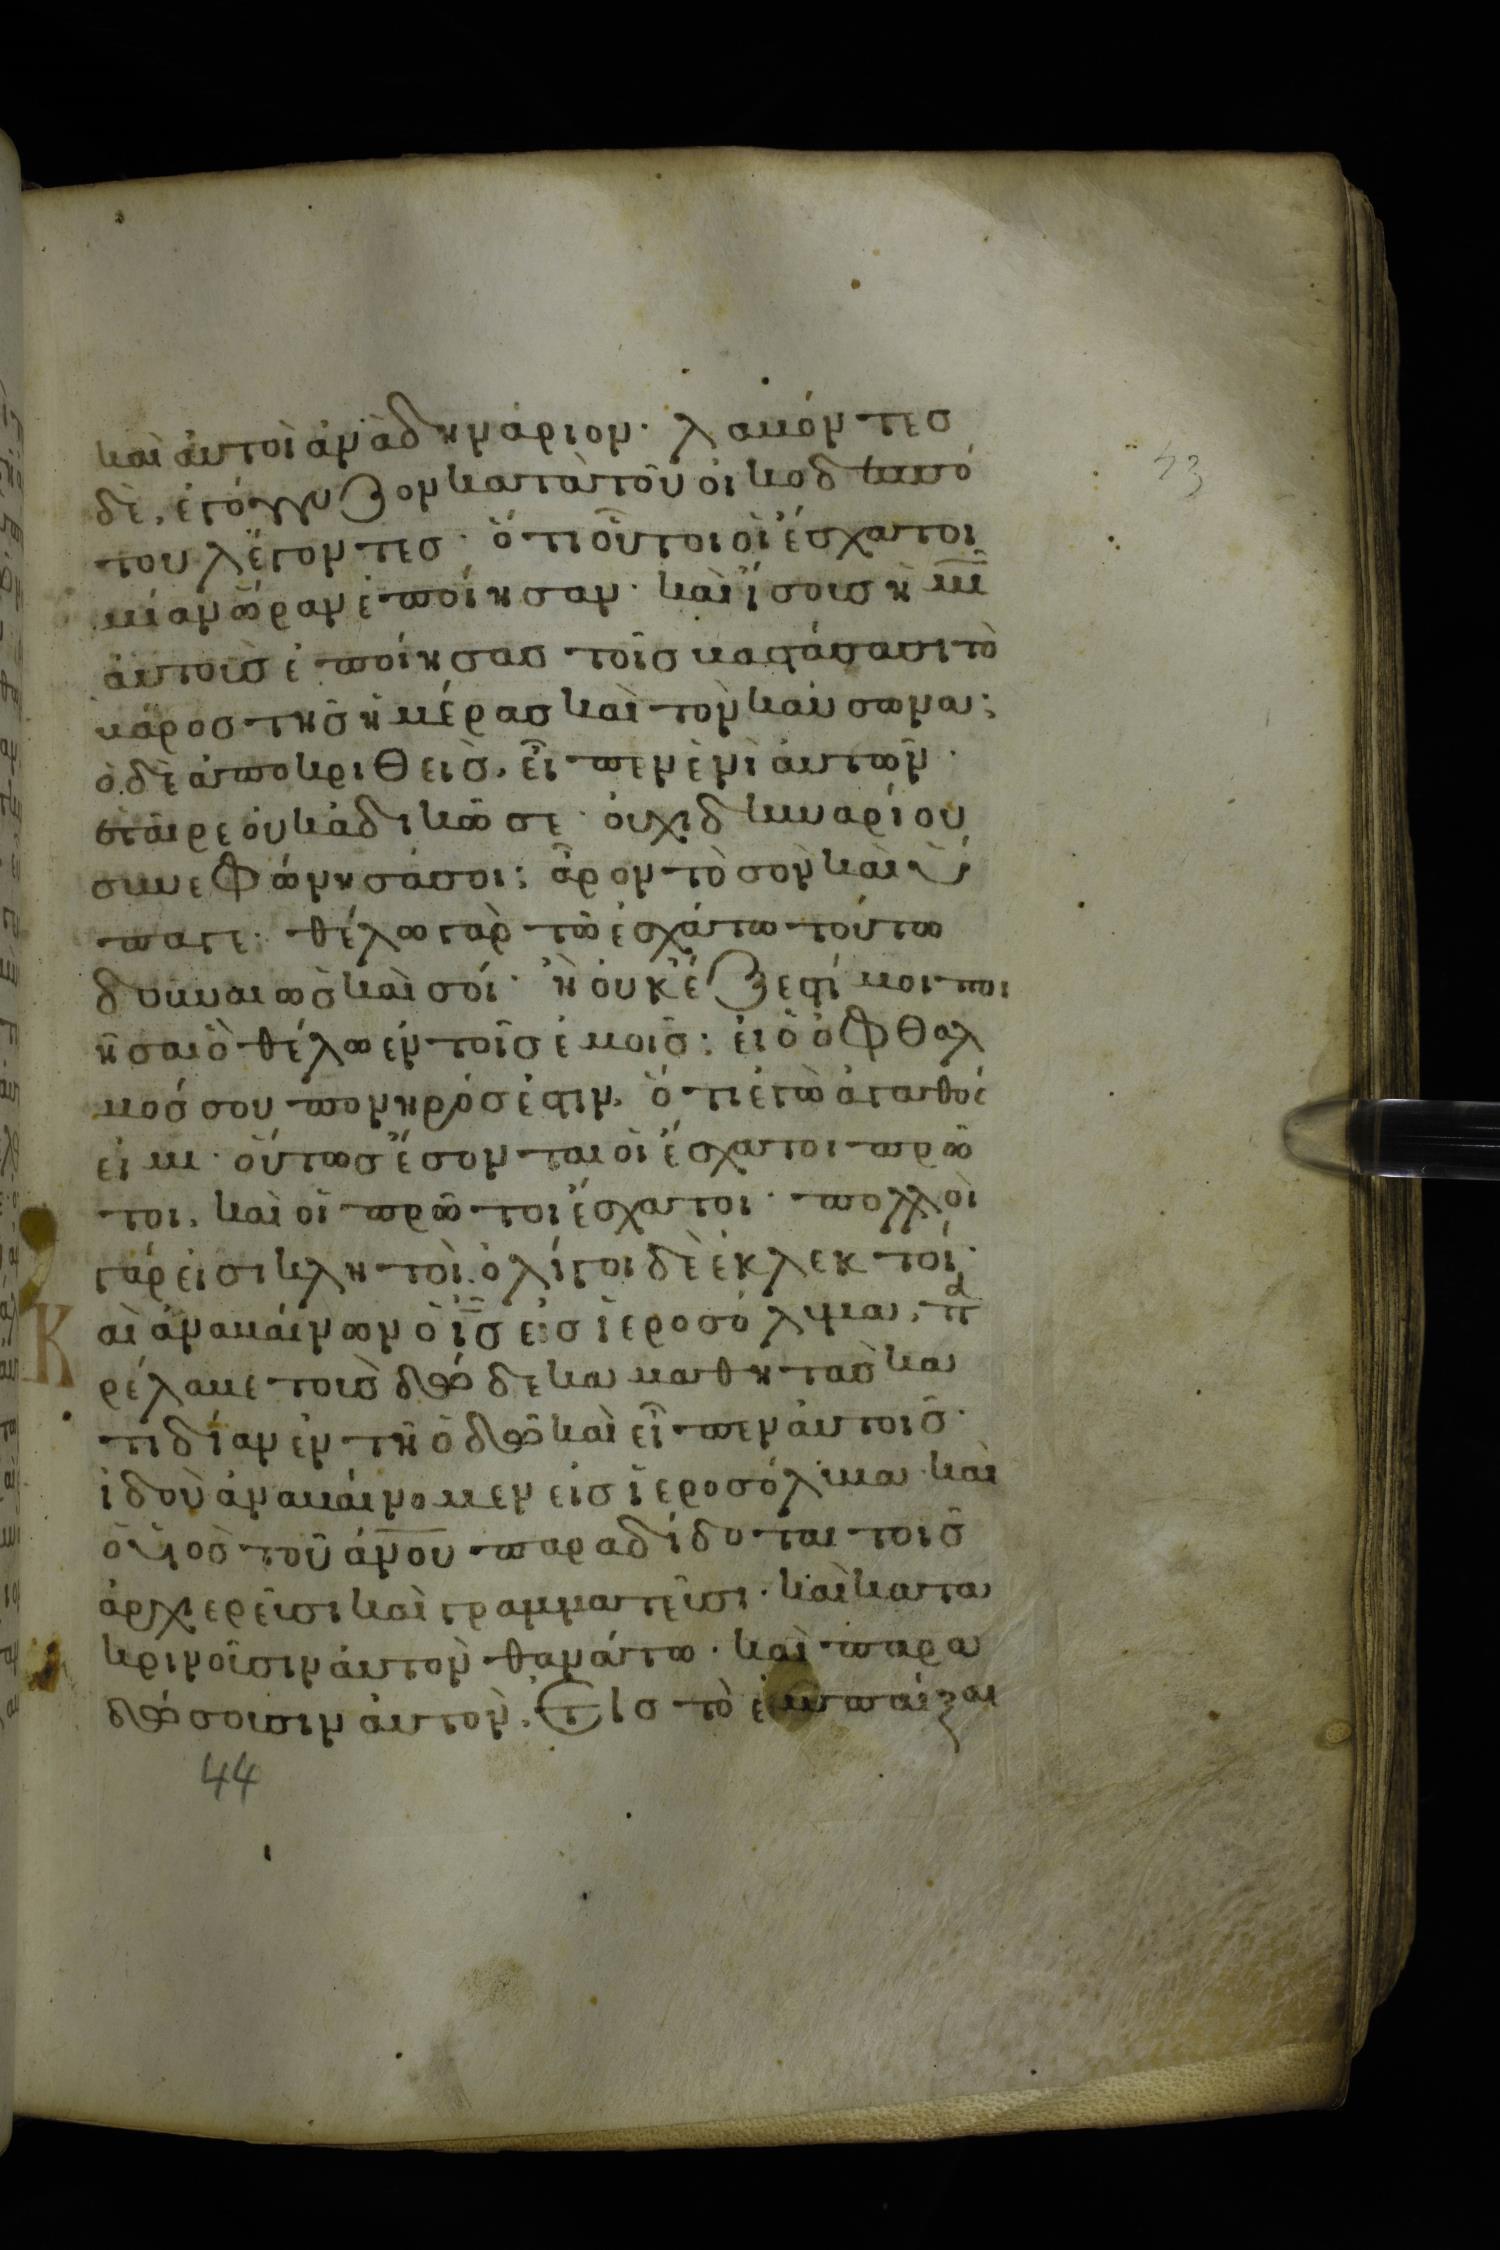 43
καὶ αὐτοὶ ἀνὰ δηνάριον· λαβόντεσ
δὲ, ἐγόγγυζον κατὰ τοῦ οἰκοδεσπό
του λέγοντεσ· ὅτι οὗτοι οἱ ἔσχατοι
μίαν ὥραν ἐποίησαν· καὶ ἴσουσ ἡμῖν
αὐτοὺσ ἐποίησασ τοῖσ βαστάσασι τὸ
βάροσ τῆσ ἡμέρασ καὶ τὸν καύσωνα;
ὁ δὲ ἀποκριθεὶσ, εἶπεν ἑνὶ αὐτῶν·
ἑταῖρε οὐκ ἀδικῶ σε· οὐχὶ δηναρίου
συνεφώνησά σοι; ἆρον τὸ σὸν καὶ ὕ
παγε· θέλω γὰρ τῶ ἐσχάτω τούτω
δοῦναι ὡσ καὶ σοί· ἢ οὐκ ἔξεστί μοι ποι
ῆσαι ὃ θέλω ἐν τοῖσ ἐμοῖσ; εἰ ὁ ὀφθαλ
μόσ σου πονηρόσ ἐστιν, ὅτι ἐγὼ ἀγαθόσ
εἰμι· οὕτωσ ἔσονται οἱ ἔσχατοι πρῶ
τοι, καὶ οἱ πρῶτοι ἔσχατοι· πολλοὶ
γάρ εἰσι κλητοὶ, ὀλίγοι δὲ ἐκλεκτοί·
Καὶ ἀναβαίνων ὁ ισ εἰσ ἱεροσόλυμα, πα
ρέλαβε τοὺσ δώδεκα μαθητὰσ κα
τιδίαν ἐν τῆ ὁδῶ καὶ εἶπεν αὐτοῖσ·
ἰδοὺ ἀναβαίνομεν εἰσ ἱεροσόλυμα καὶ
ὁ υἱὸσ τοῦ ανου παραδίδοται τοῖσ
ἀρχιερεῦσι καὶ γραμματεῦσι· καὶ κατα
κρινοῦσιν αὐτὸν θανάτω· καὶ παρα
δώσουσιν αὐτὸν, Εἰσ τὸ ἐμπαίξαι
44